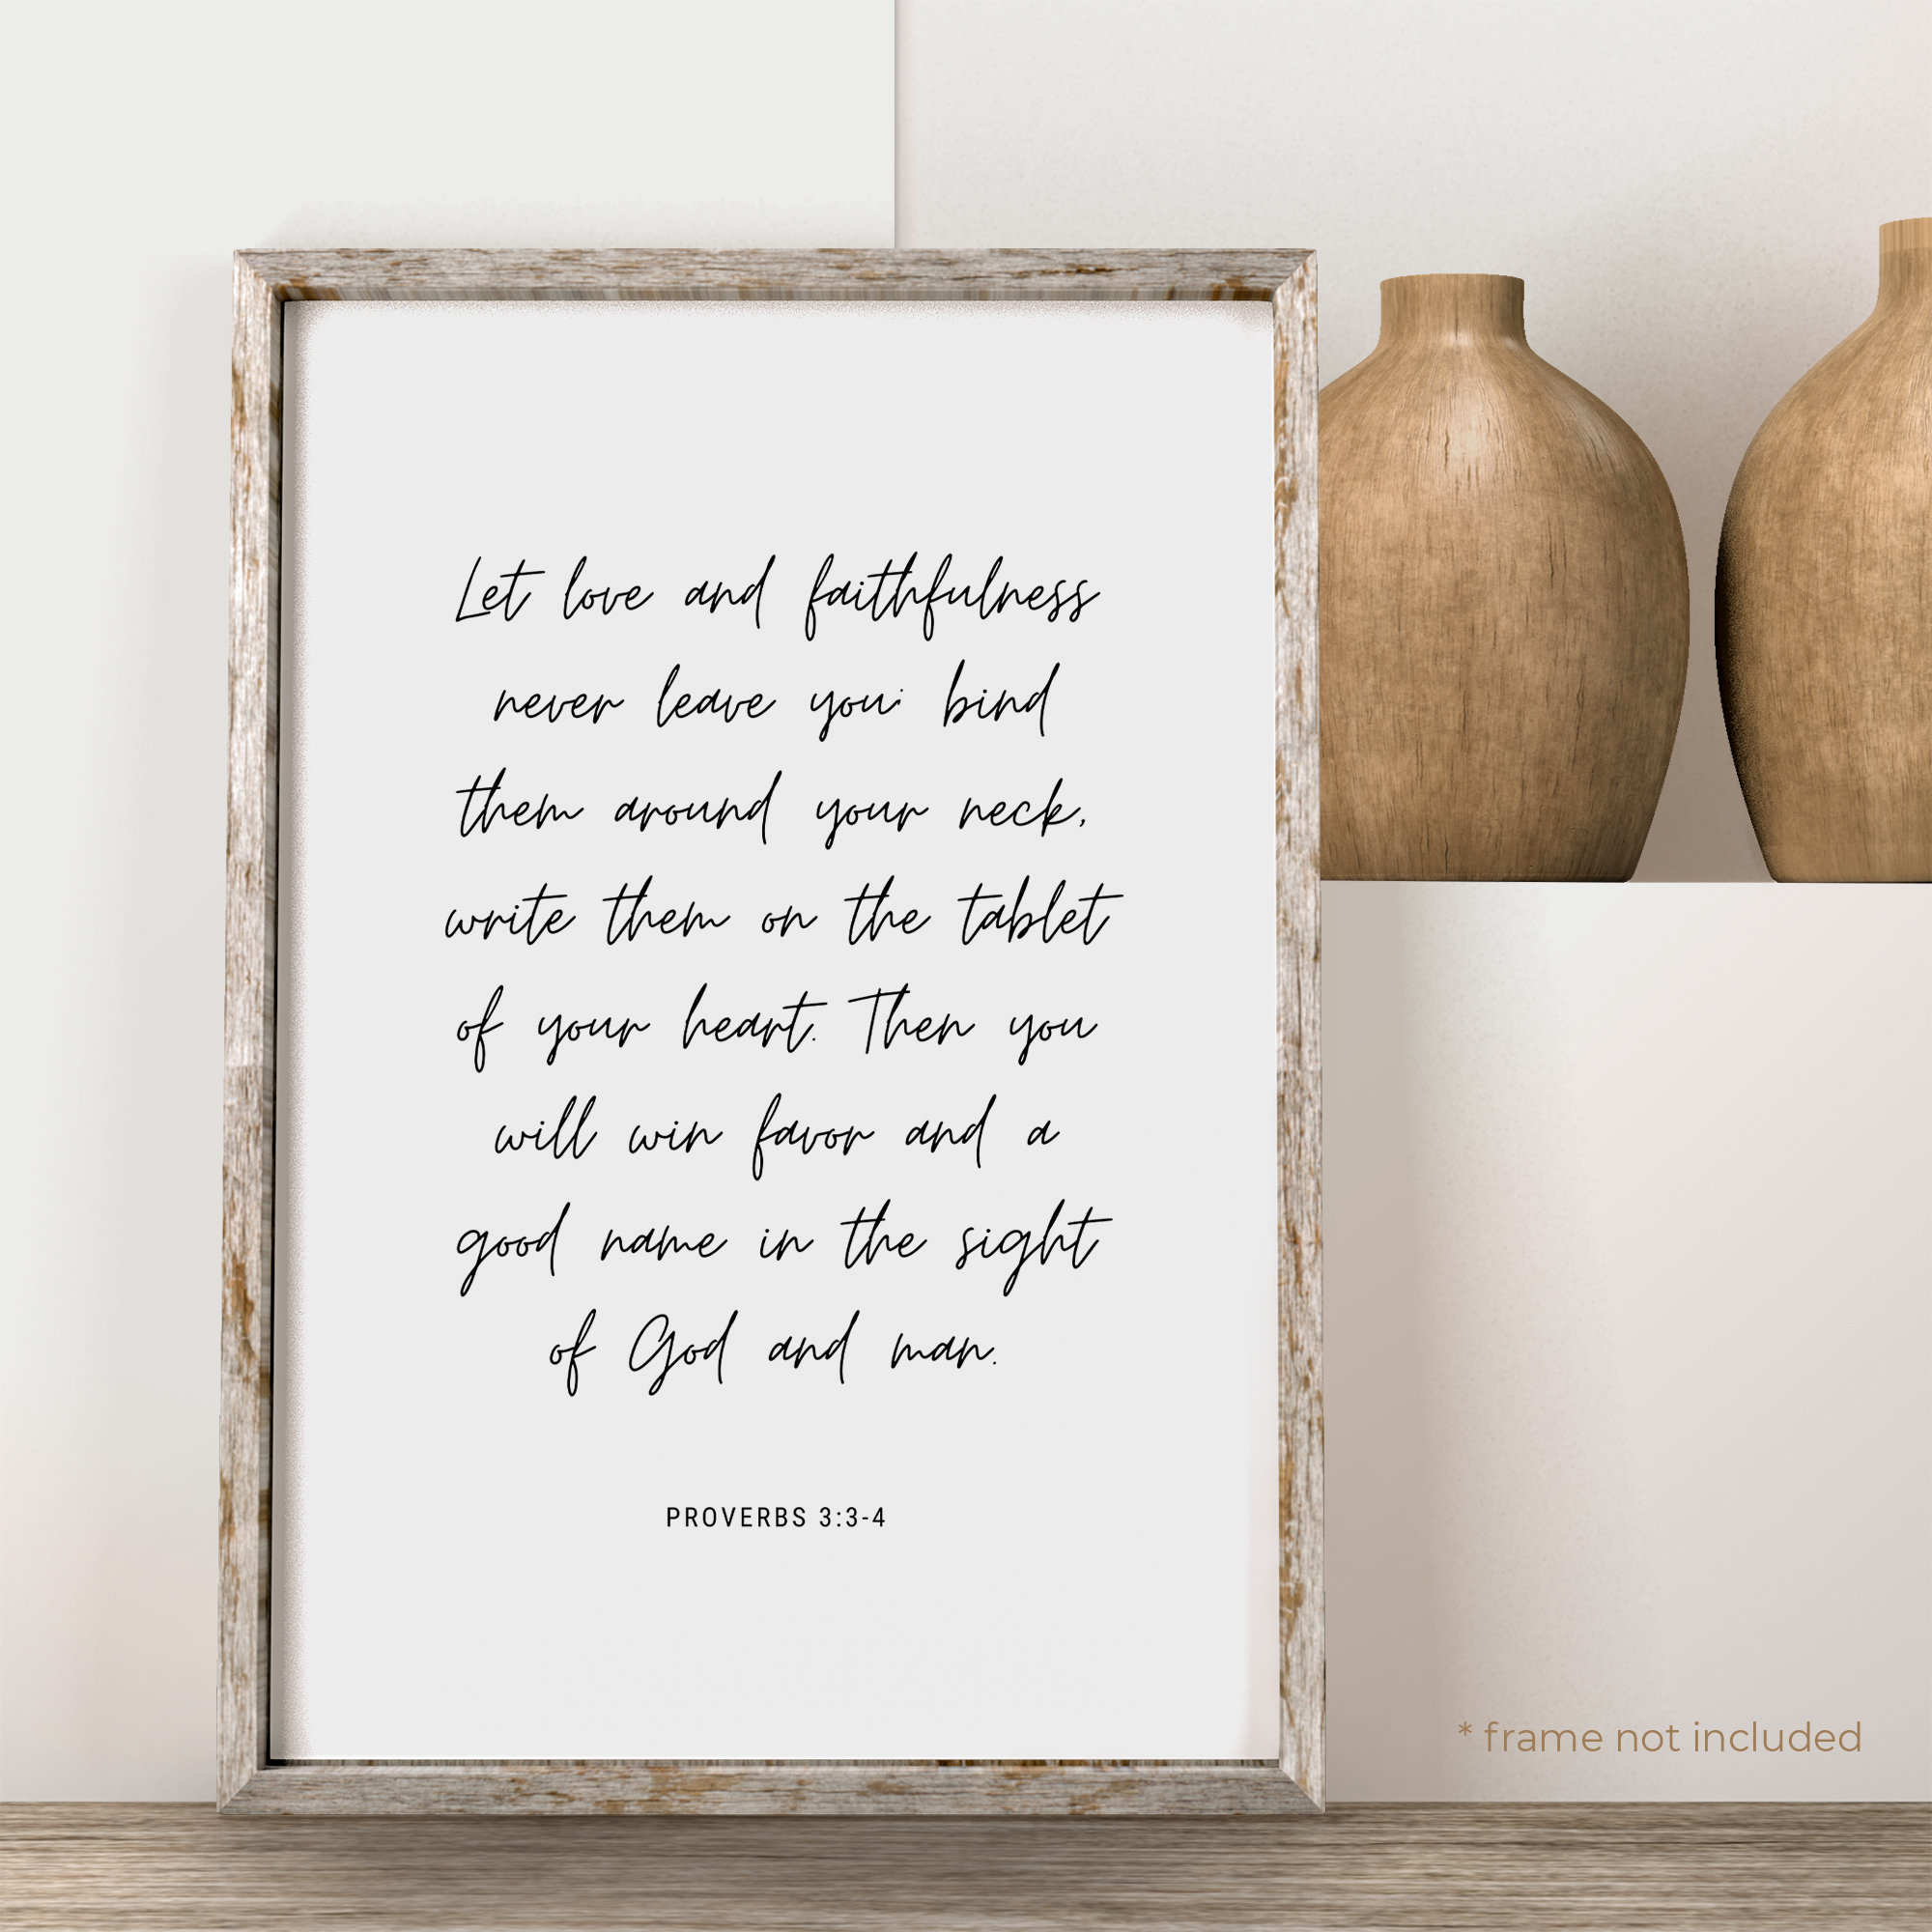 Let love and faithfulness
never leave you; bind
them around your neck,
write them on the tablet
of your heart. Then you
will win favor and a
good name in the sight
of God and man.
PROVERBS 3:3-4
* frame not included